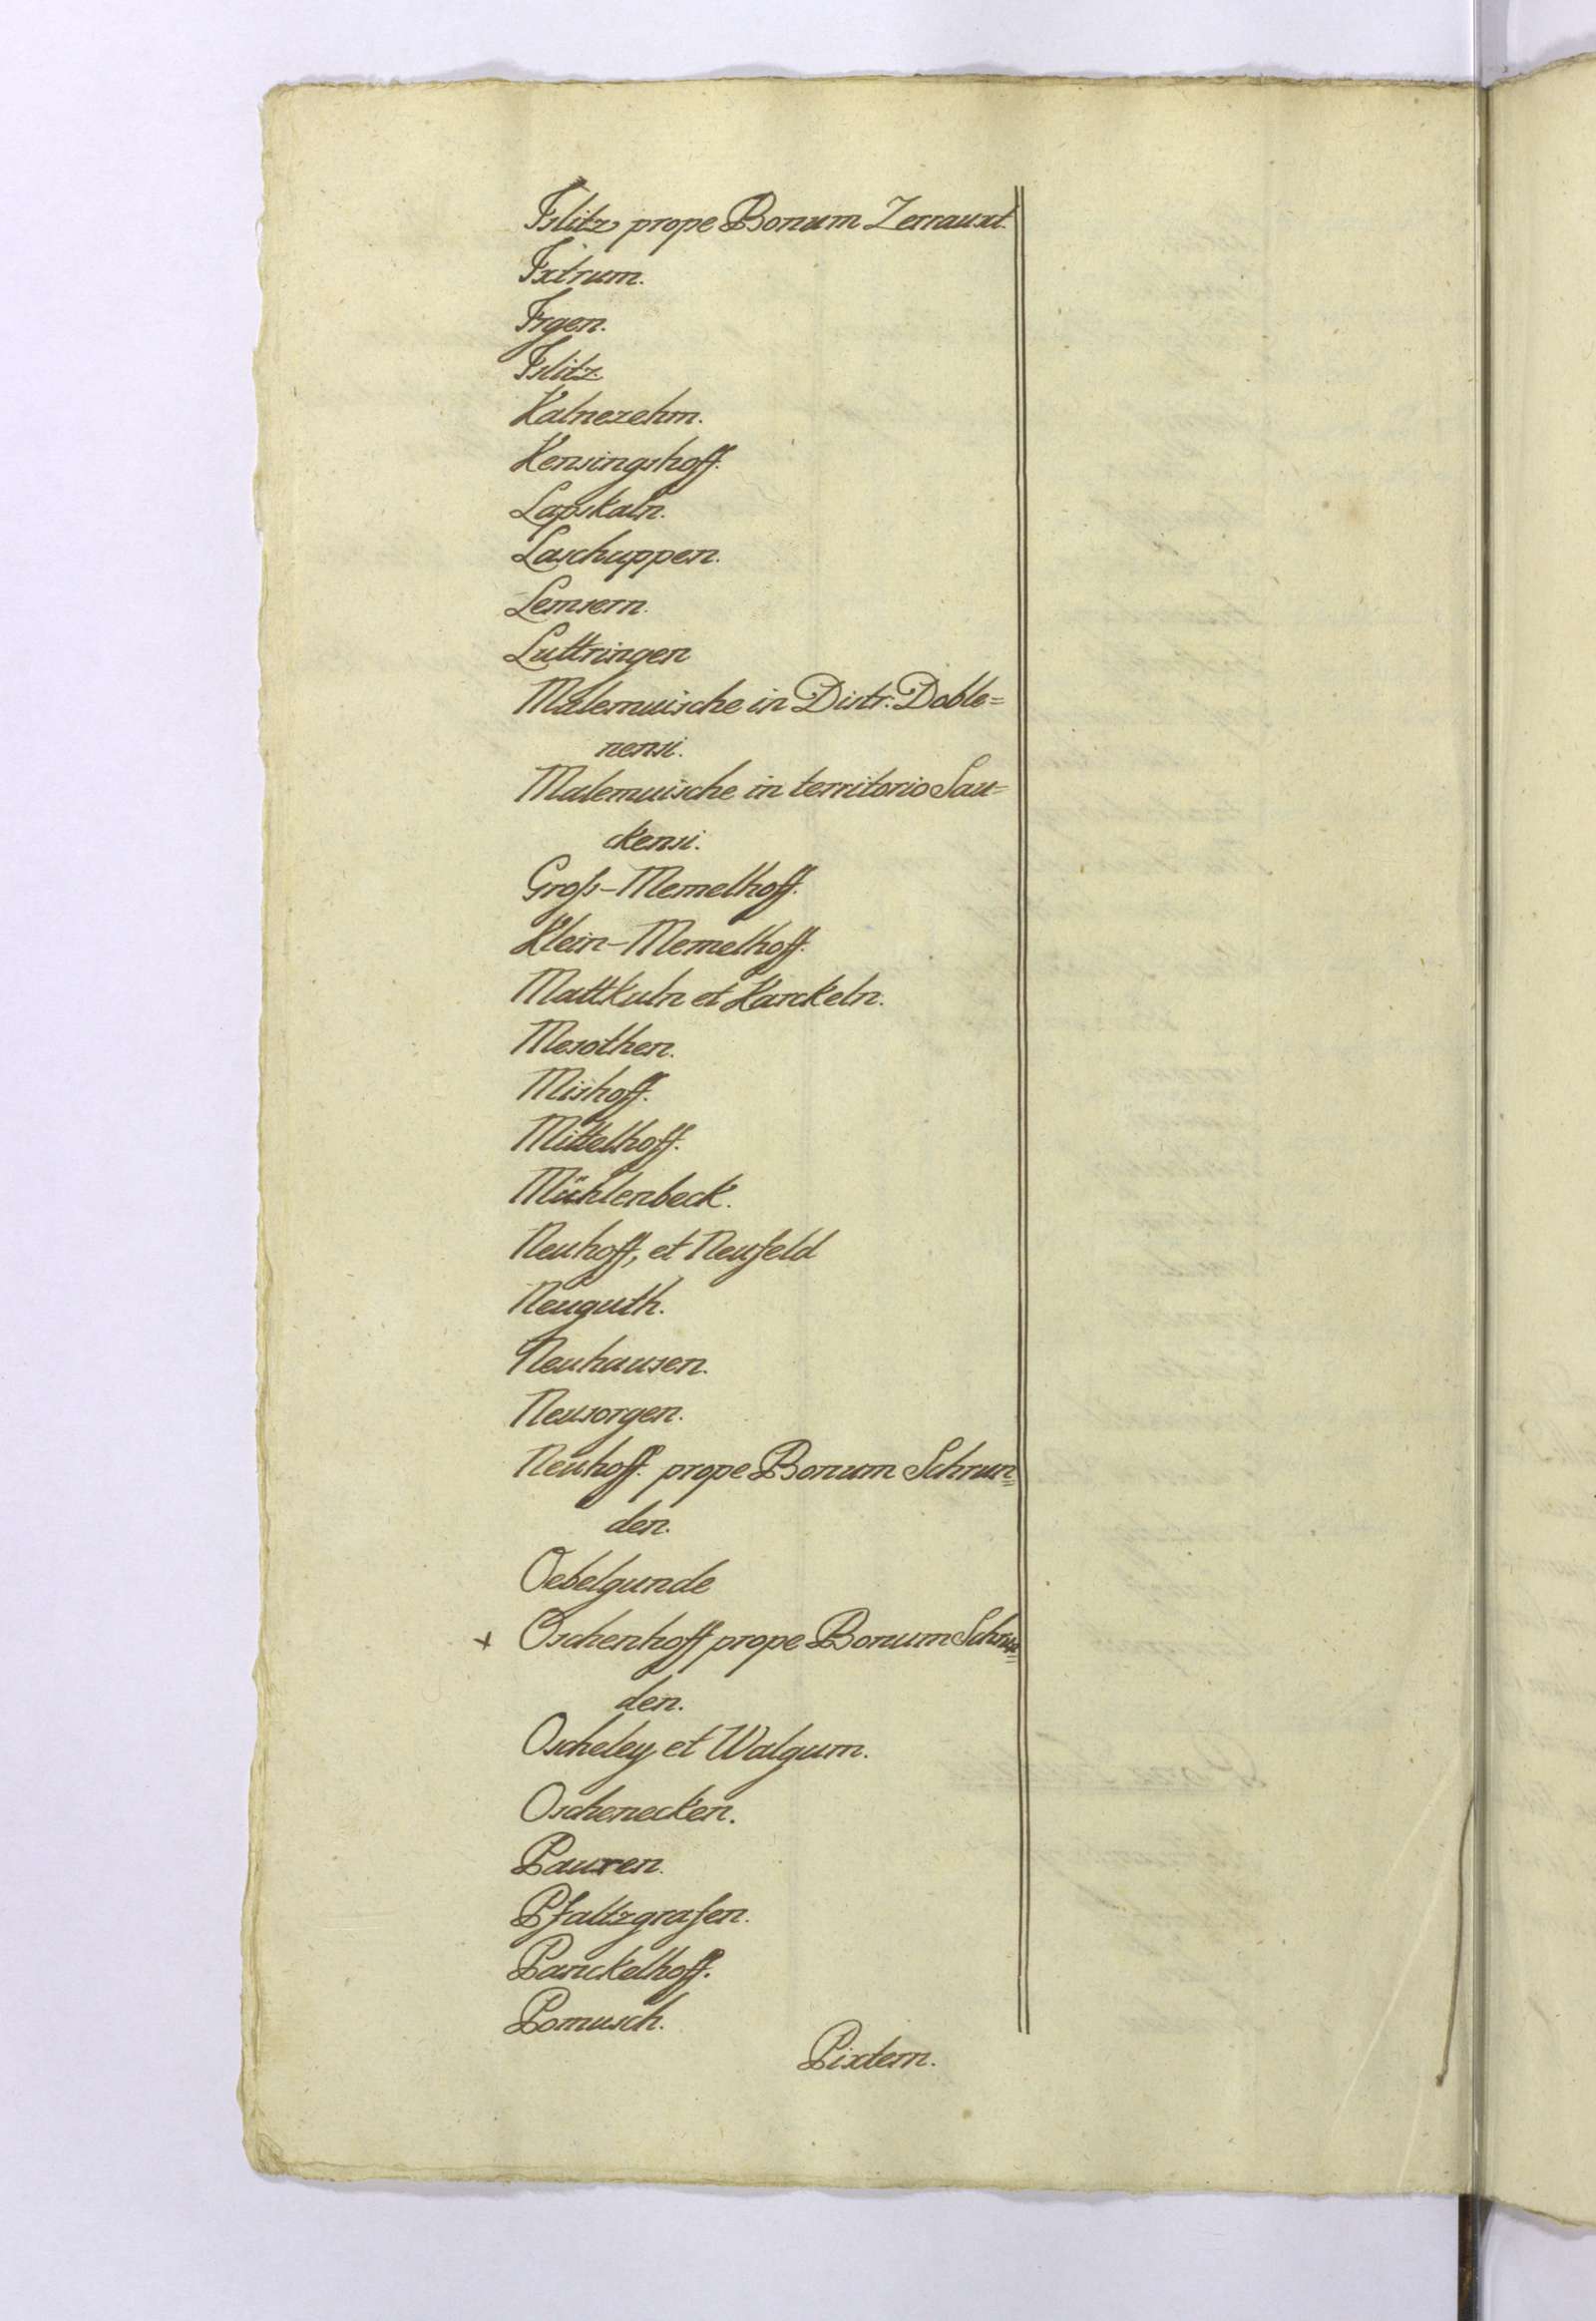 Islitz prope Bonum Zerrauxt.
Ixtrum.
Irgen.
Islitz.
Kalnezehm.
Kensingshoff.
Lapskaln.
Laschuppen.
Lemsern.
Luttringen
Malemuische in Distr. Doble=
nensi.
Malemuische in territorio Sau=
ckensi.
Groß-Memelhoff.
Klein-Memelhoff.
Mattkuln et Karckeln.
Mesothen.
Mishoff.
Mittelhoff.
Mühlenbeck.
Neuhoff, et Neufeld
Neuguth.
Neuhausen.
Neusorgen.
Neuhoff. prope Bonum Schrun=
den.
Oebelgunde
+ Oschenhoff prope Bonum Schrun=
den.
Oscheley et Walgum.
Oschenecken.
Pauren.
Pfaltzgrafen.
Panckelhoff.
Pomusch.
Pixtern.